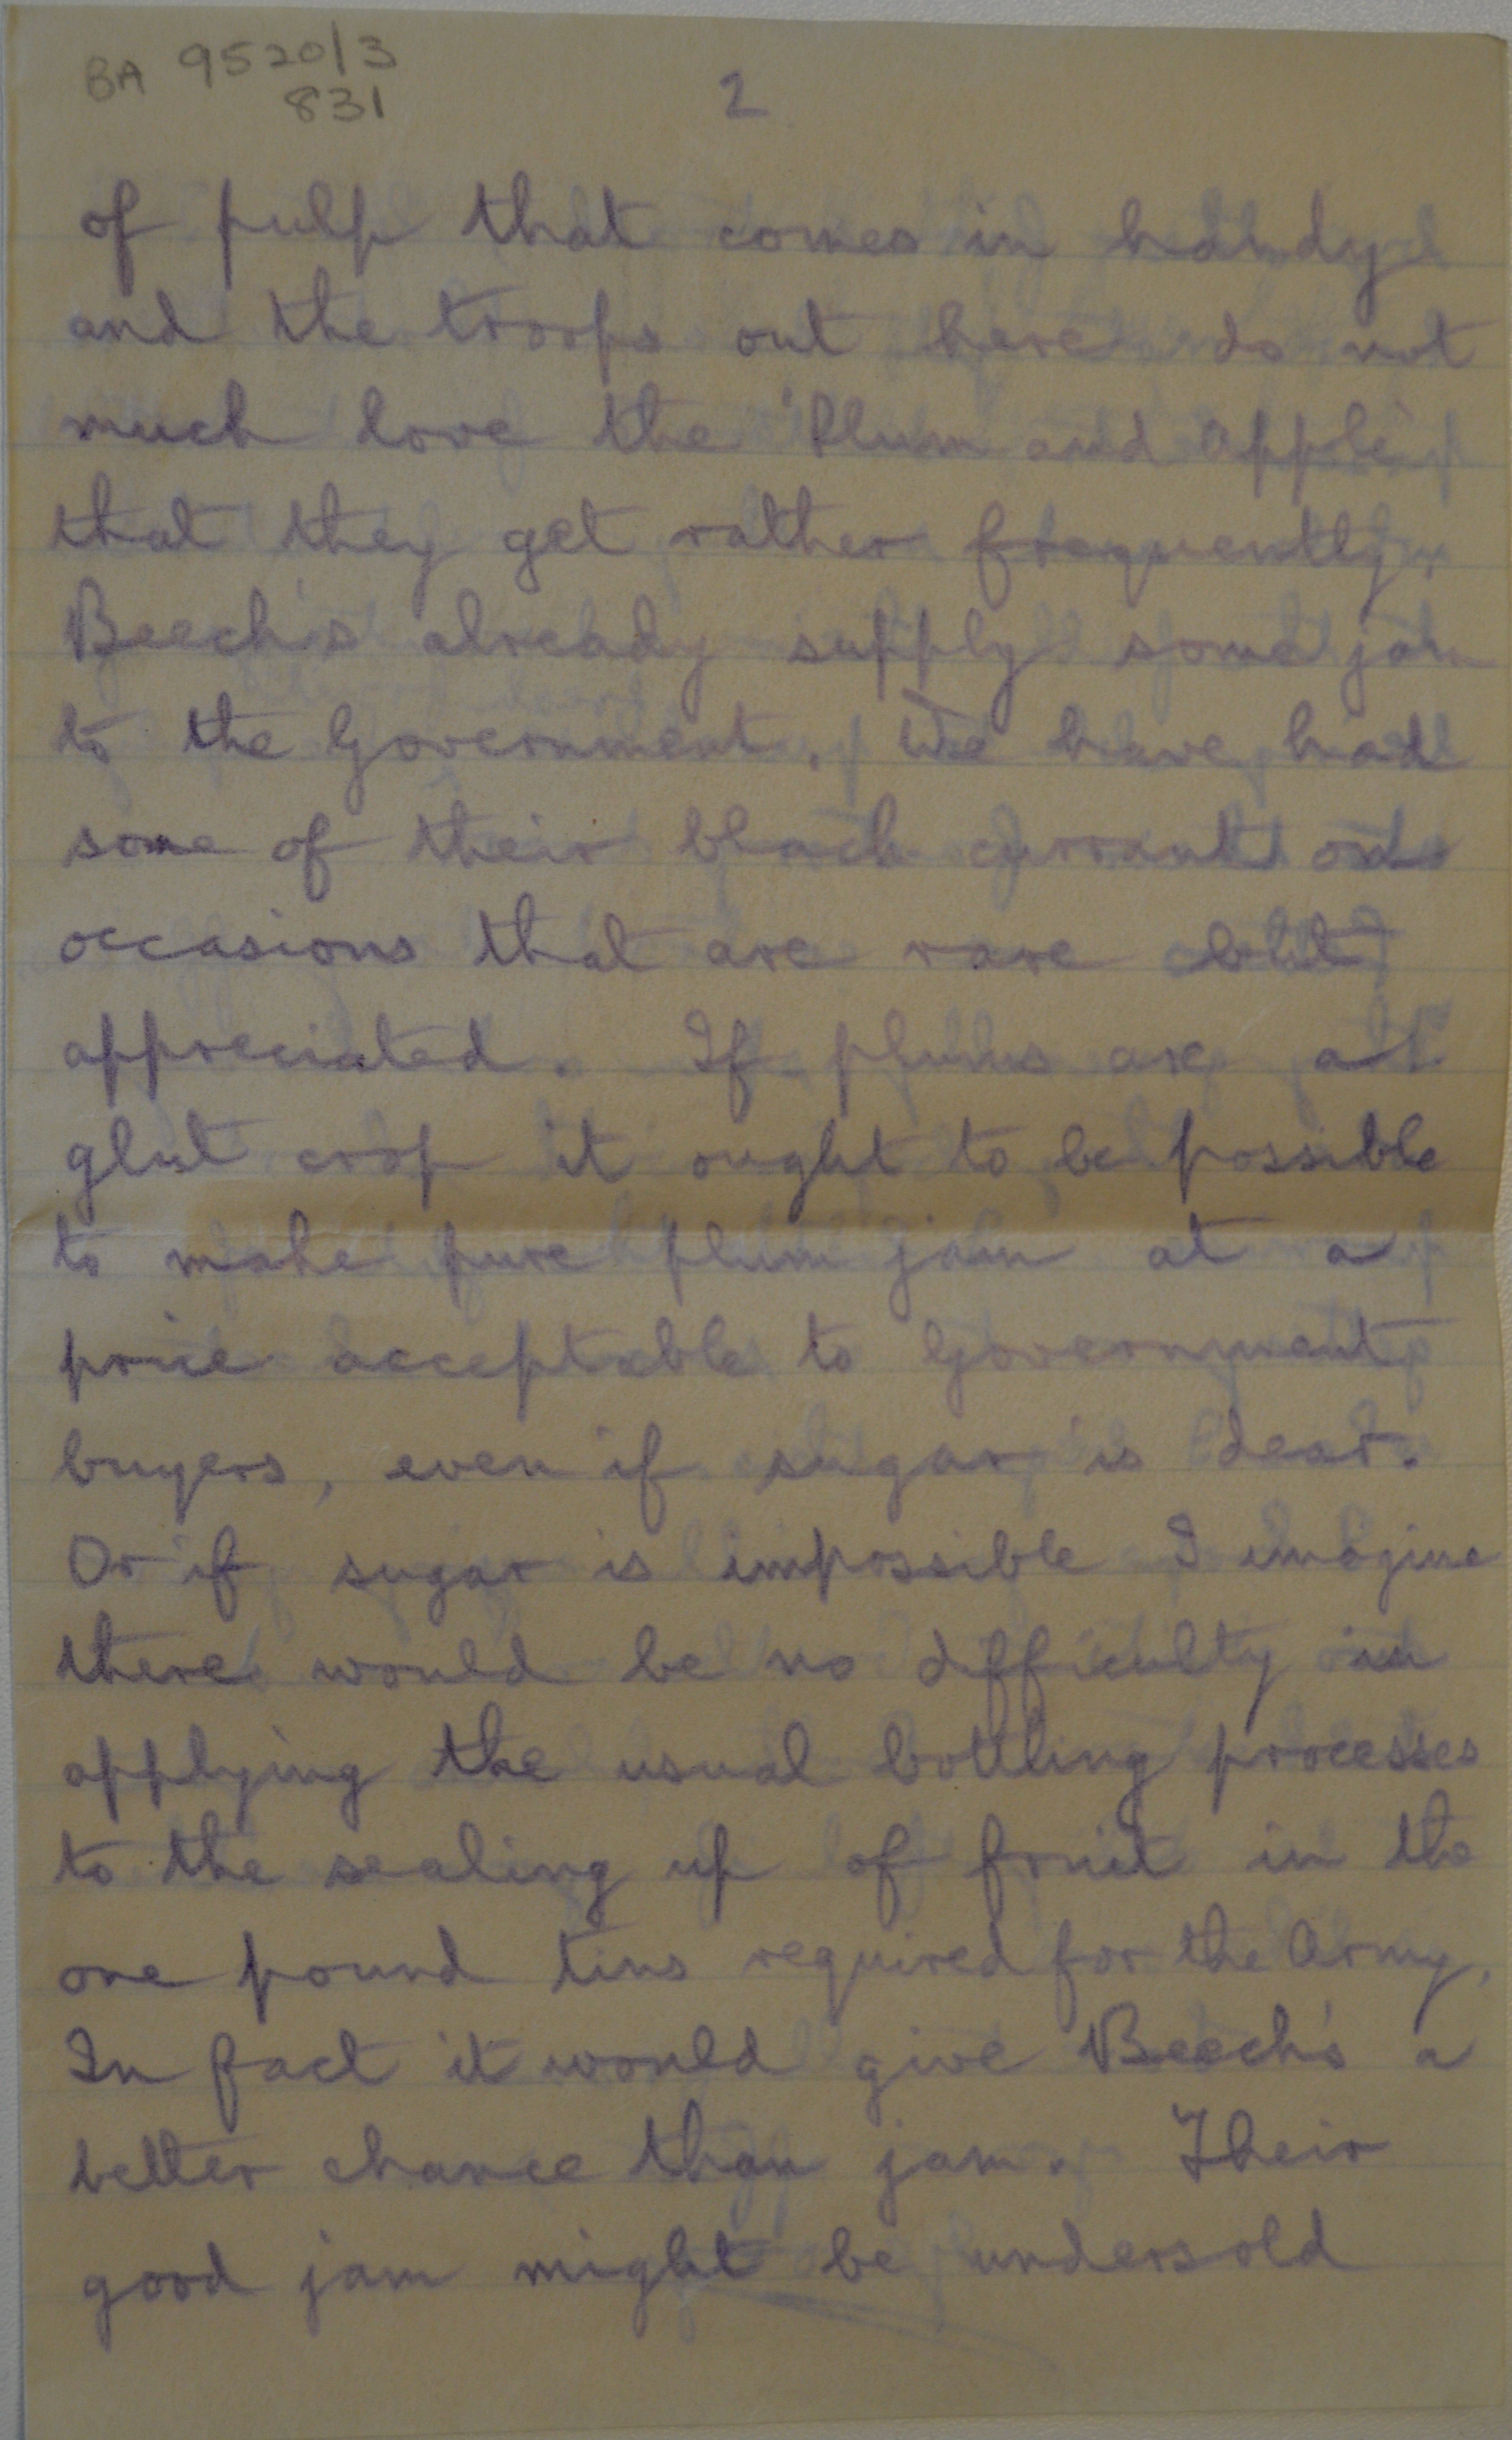 BA 9520/3
831
2
of pulp that comes in handy
and the troops out here do not
much love the 'Plum and Apple'
that they get rather frequently.
Beech's already supply some jam
to the Government. We have had
some of their black currant on
occasions that are rare but
appreciated. If plums are a
glut crop it ought to be possible
to make pure plum jam at a
price acceptable to Government
buyers, even if sugar is dear.
Or if sugar is impossible I imagine
there would be no difficulty in
applying the usual bottling processes
to the sealing up of fruit in the
one pound tins required for the Army.
In fact it would give Beech's a
better chance than jam. Their
good jam might be undersold